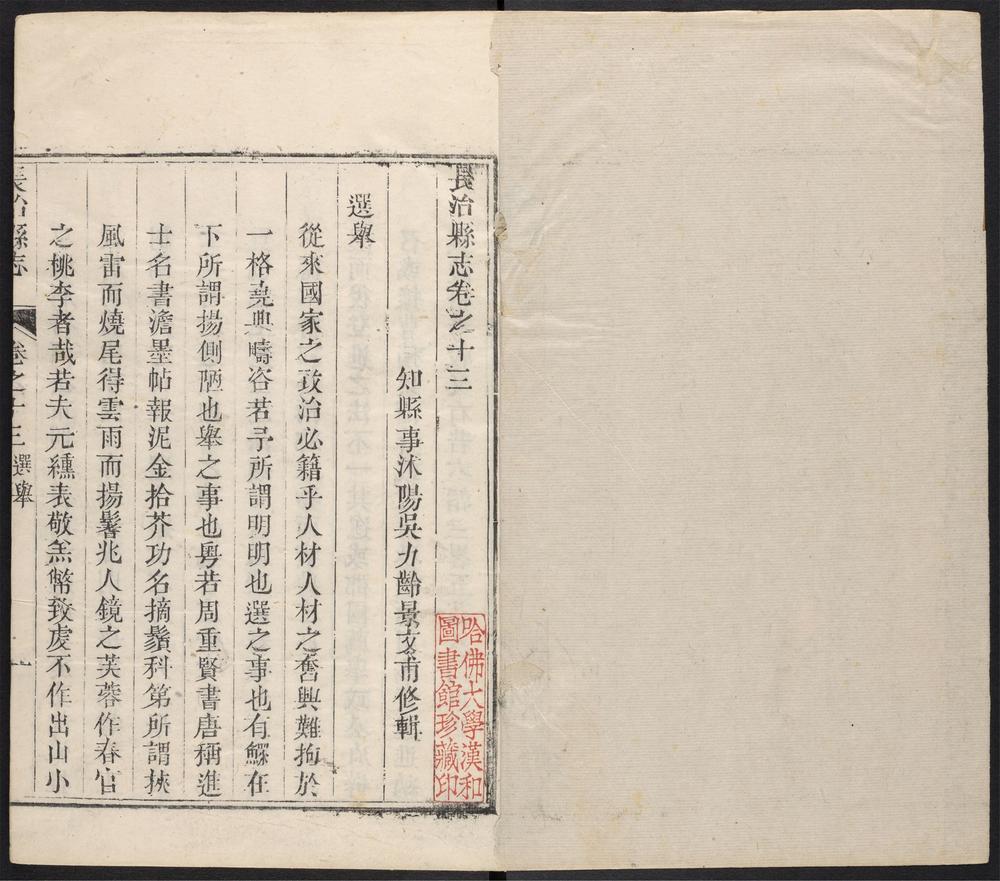 長治縣志卷之十三
知縣事沭陽吳九齡景文甫修輯
選舉
從來國家之政治必籍乎人材人材之奮興難拘於
一格堯典疇咨若予所謂明明也選之事也有鰥在
下所謂揚側陋也舉之事也粵若周重賢書唐稱進
士名書澹墨帖報泥金拾芥功名摘鬚科第所謂挾
風雷而燒尾得雲雨而揚鬐兆人鏡之芙蓉作春官
之桃李者哉若夫元纁表敬羔幣致虔不作出山小
長治縣志
卷之十三 選舉
一
哈佛大學漢和
圖書館珍藏印